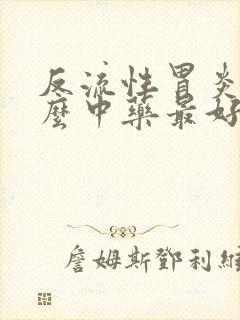 反流性胃炎
麼中藥最好
詹姆斯鄧利維